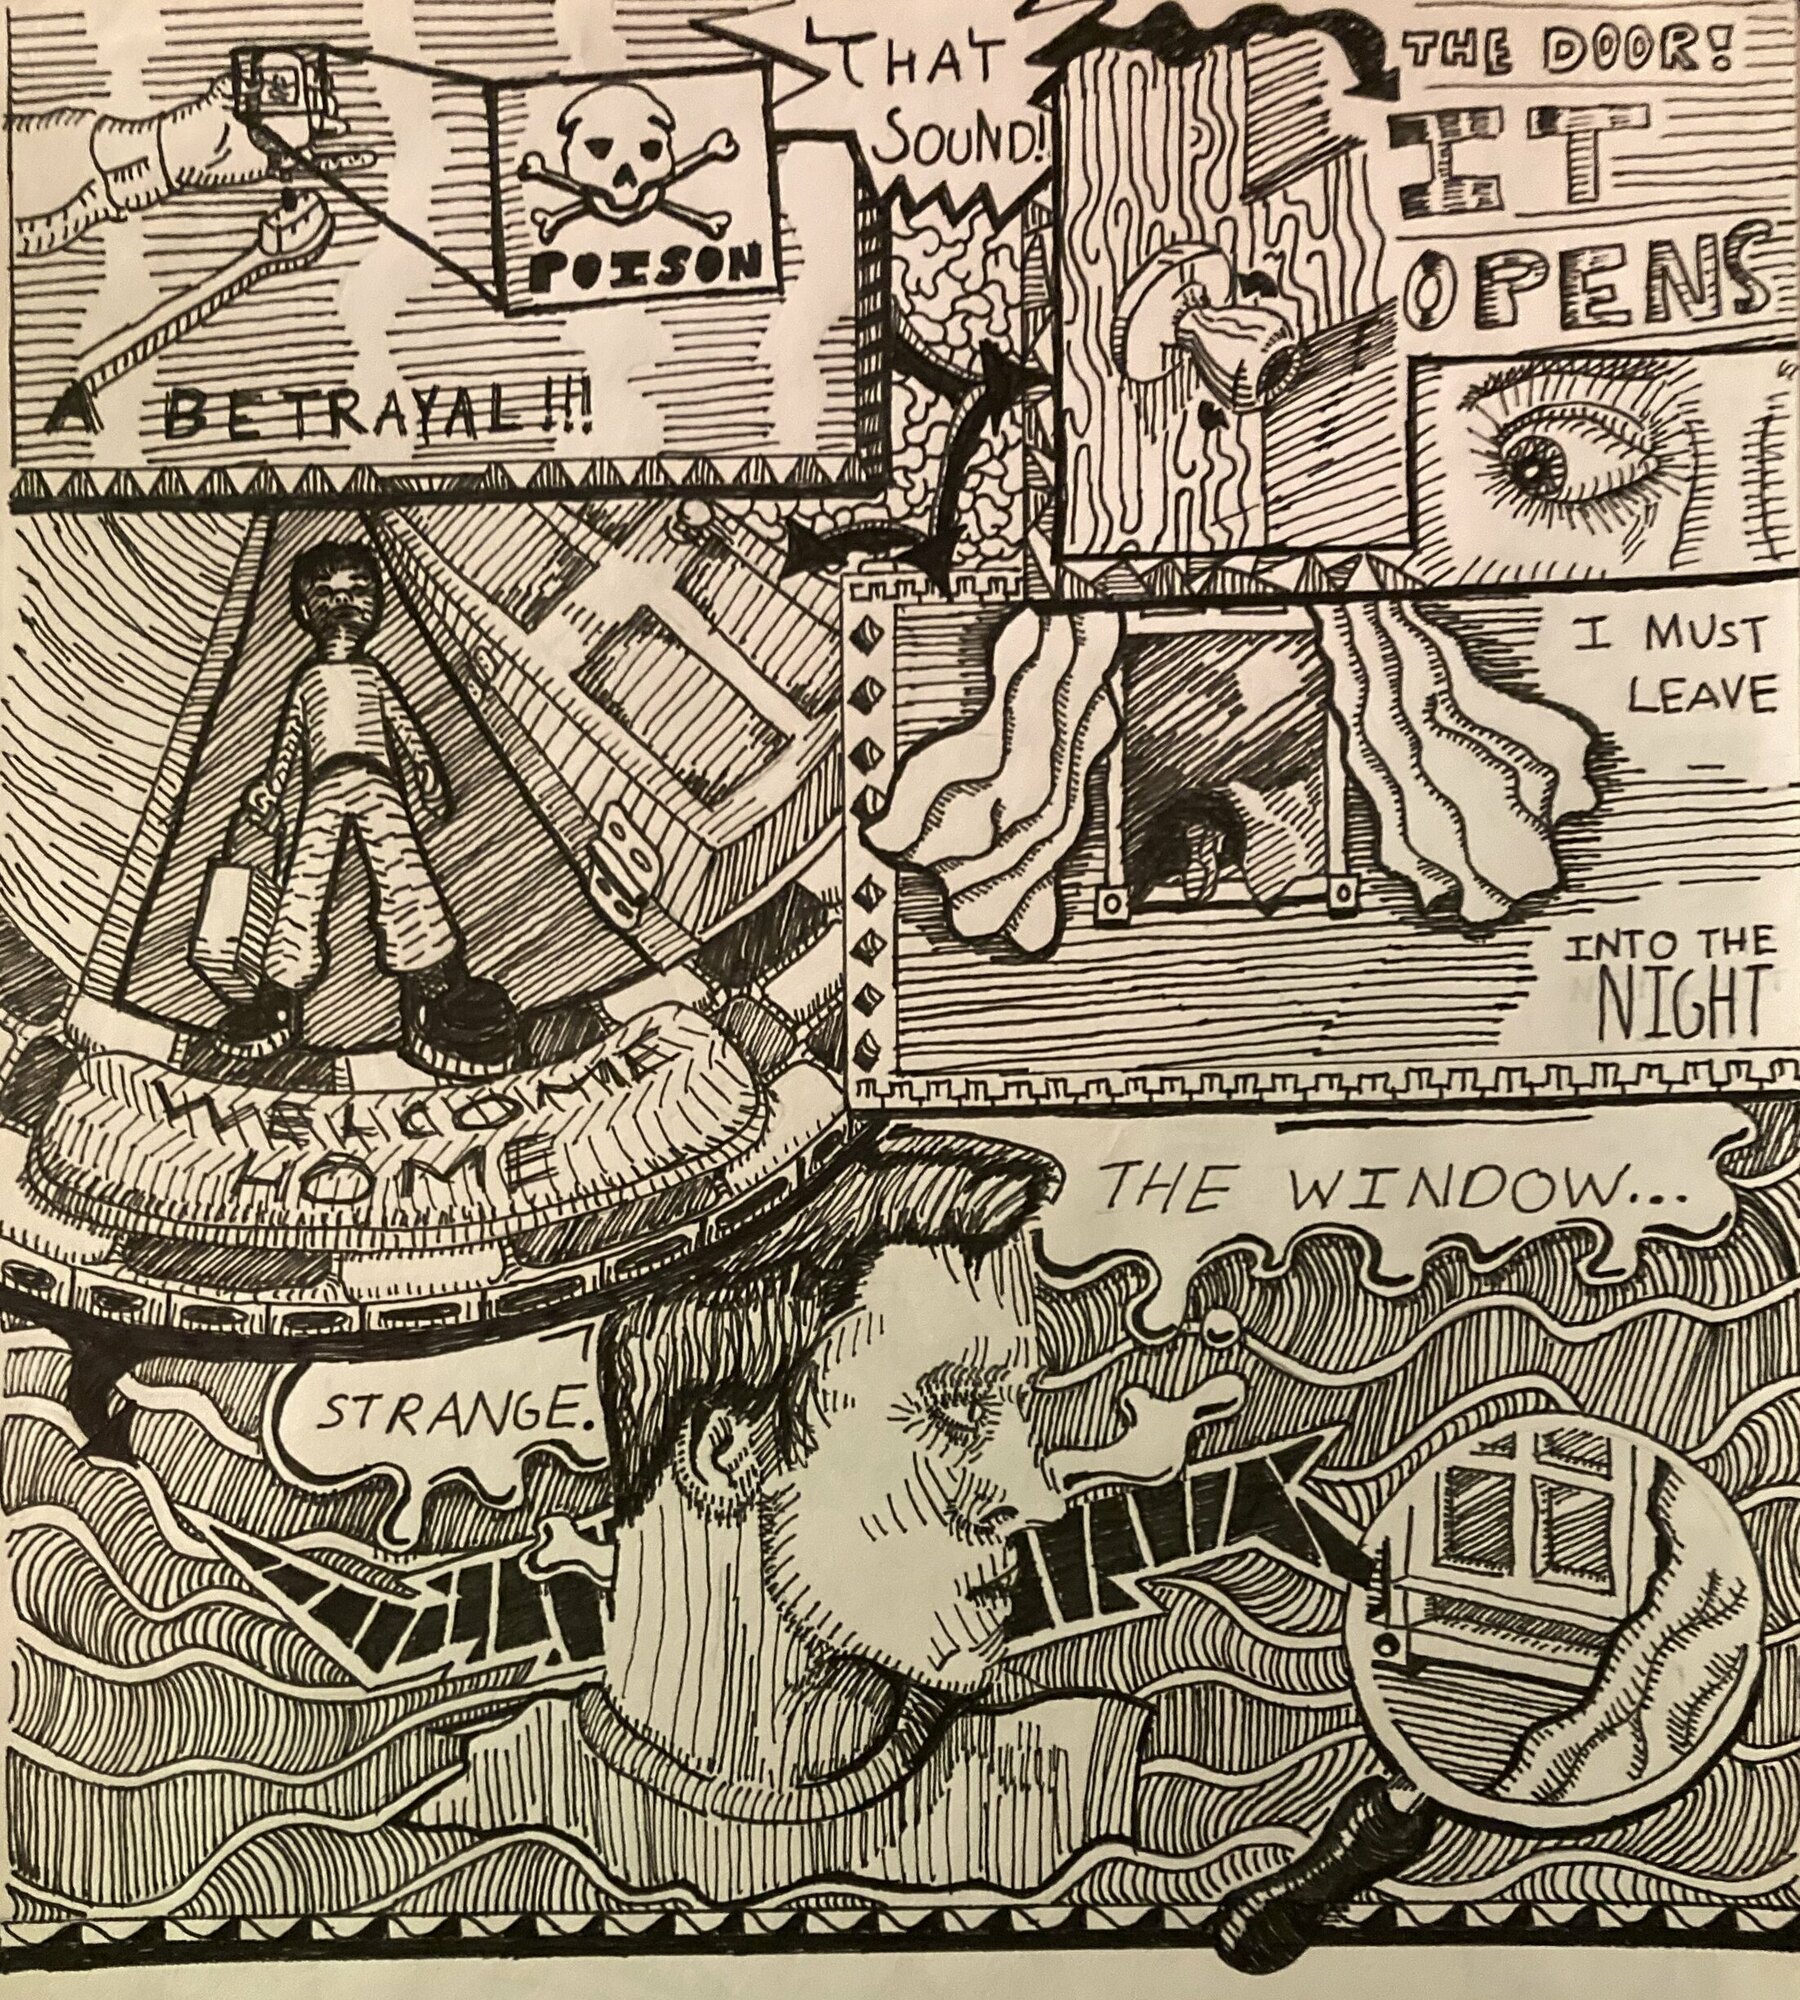 POISON
A BETRAYAL!!!
THAT
SOUND!
THE DOOR!
IT
OPENS
I MUST
LEAVE
INTO THE
NIGHT
WELCOME
HOME
STRANGE.
THE WINDOW...